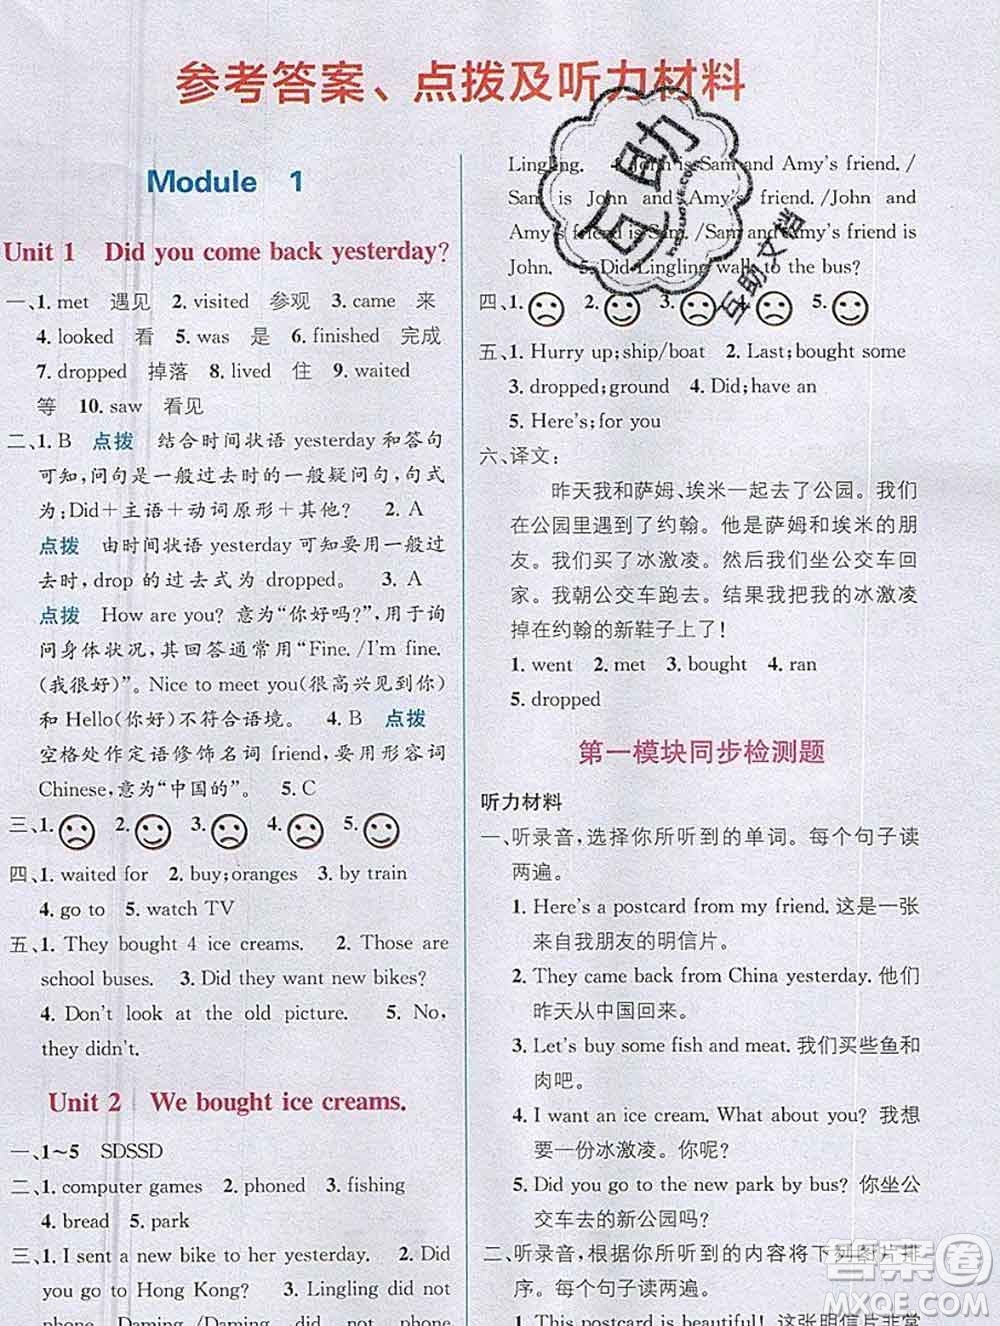 参考答案、点拨及听力材料
Module 1
Unit 1 Did you come back yesterday?
一、1. met 遇见 2. visited 参观 3. came 来
4. looked 看 5. was 是 6. finished 完成
7. dropped 掉落 8. lived 住 9. waited
等 10. saw 看见
二、1. B 点拨 结合时间状语 yesterday 和答句
可知,问句是一般过去时的一般疑问句,句式
为:Did+主语+动词原形+其他? 2. A
点拨 由时间状语 yesterday 可知要用一般过
去时,drop 的过去式为 dropped. 3. A
点拨 How are you? 意为“你好吗?”,用于询
问身体状况,其回答通常用“Fine. /I'm fine.
(我很好)”。Nice to meet you(很高兴见到你)
和 Hello(你好)不符合语境。 4. B 点拨
空格处作定语修饰名词 friend,要用形容词
Chinese,意为“中国的”。 5. C
三、1. 2. 3. 4. 5.
四、1. waited for 2. buy;oranges 3. by train
4. go to 5. watch TV
五、1. They bought 4 ice creams. 2. Those are
school buses. 3. Did they want new bikes?
4. Don't look at the old picture. 5. No,
they didn't.
Unit 2 We bought ice creams.
一、1~5 SDSSD
二、1. computer games 2. phoned 3. fishing
4. bread 5. park
三、1. I sent a new bike to her yesterday. 2. Did
you go to Hong Kong? 3. Lingling did not
phone Daming. /Daming did not phone
Lingling. 4. John is Sam and Amy's friend. /
Sam is John and Amy's friend. /John and
Amy's friend is Sam. /Sam and Amy's friend is
John. 5. Did Lingling walk to the bus?
四、1. 2. 3. 4. 5.
五、1. Hurry up;ship/boat 2. Last;bought some
3. dropped;ground 4. Did;have an
5. Here's;for you
六、译文:
昨天我和萨姆、埃米一起去了公园。我们
在公园里遇到了约翰。他是萨姆和埃米的朋
友。我们买了冰激凌。然后我们坐公交车回
家。我朝公交车跑去。结果我把我的冰激凌
掉在约翰的新鞋子上了!
1. went 2. met 3. bought 4. ran
5. dropped
第一模块同步检测题
听力材料
一、听录音,选择你所听到的单词。每个句子读
两遍。
1. Here's a postcard from my friend. 这是一张
来自我朋友的明信片。
2. They came back from China yesterday. 他们
昨天从中国回来。
3. Let's buy some fish and meat. 我们买些鱼和
肉吧。
4. I want an ice cream. What about you? 我想
要一份冰激凌。你呢?
5. Did you go to the new park by bus? 你坐公
交车去的新公园吗?
二、听录音,根据你所听到的内容将下列图片排
序。每个句子读两遍。
1. This postcard is beautiful! 这张明信片非常
互助
互助文档
答案圈
MXQE.COM